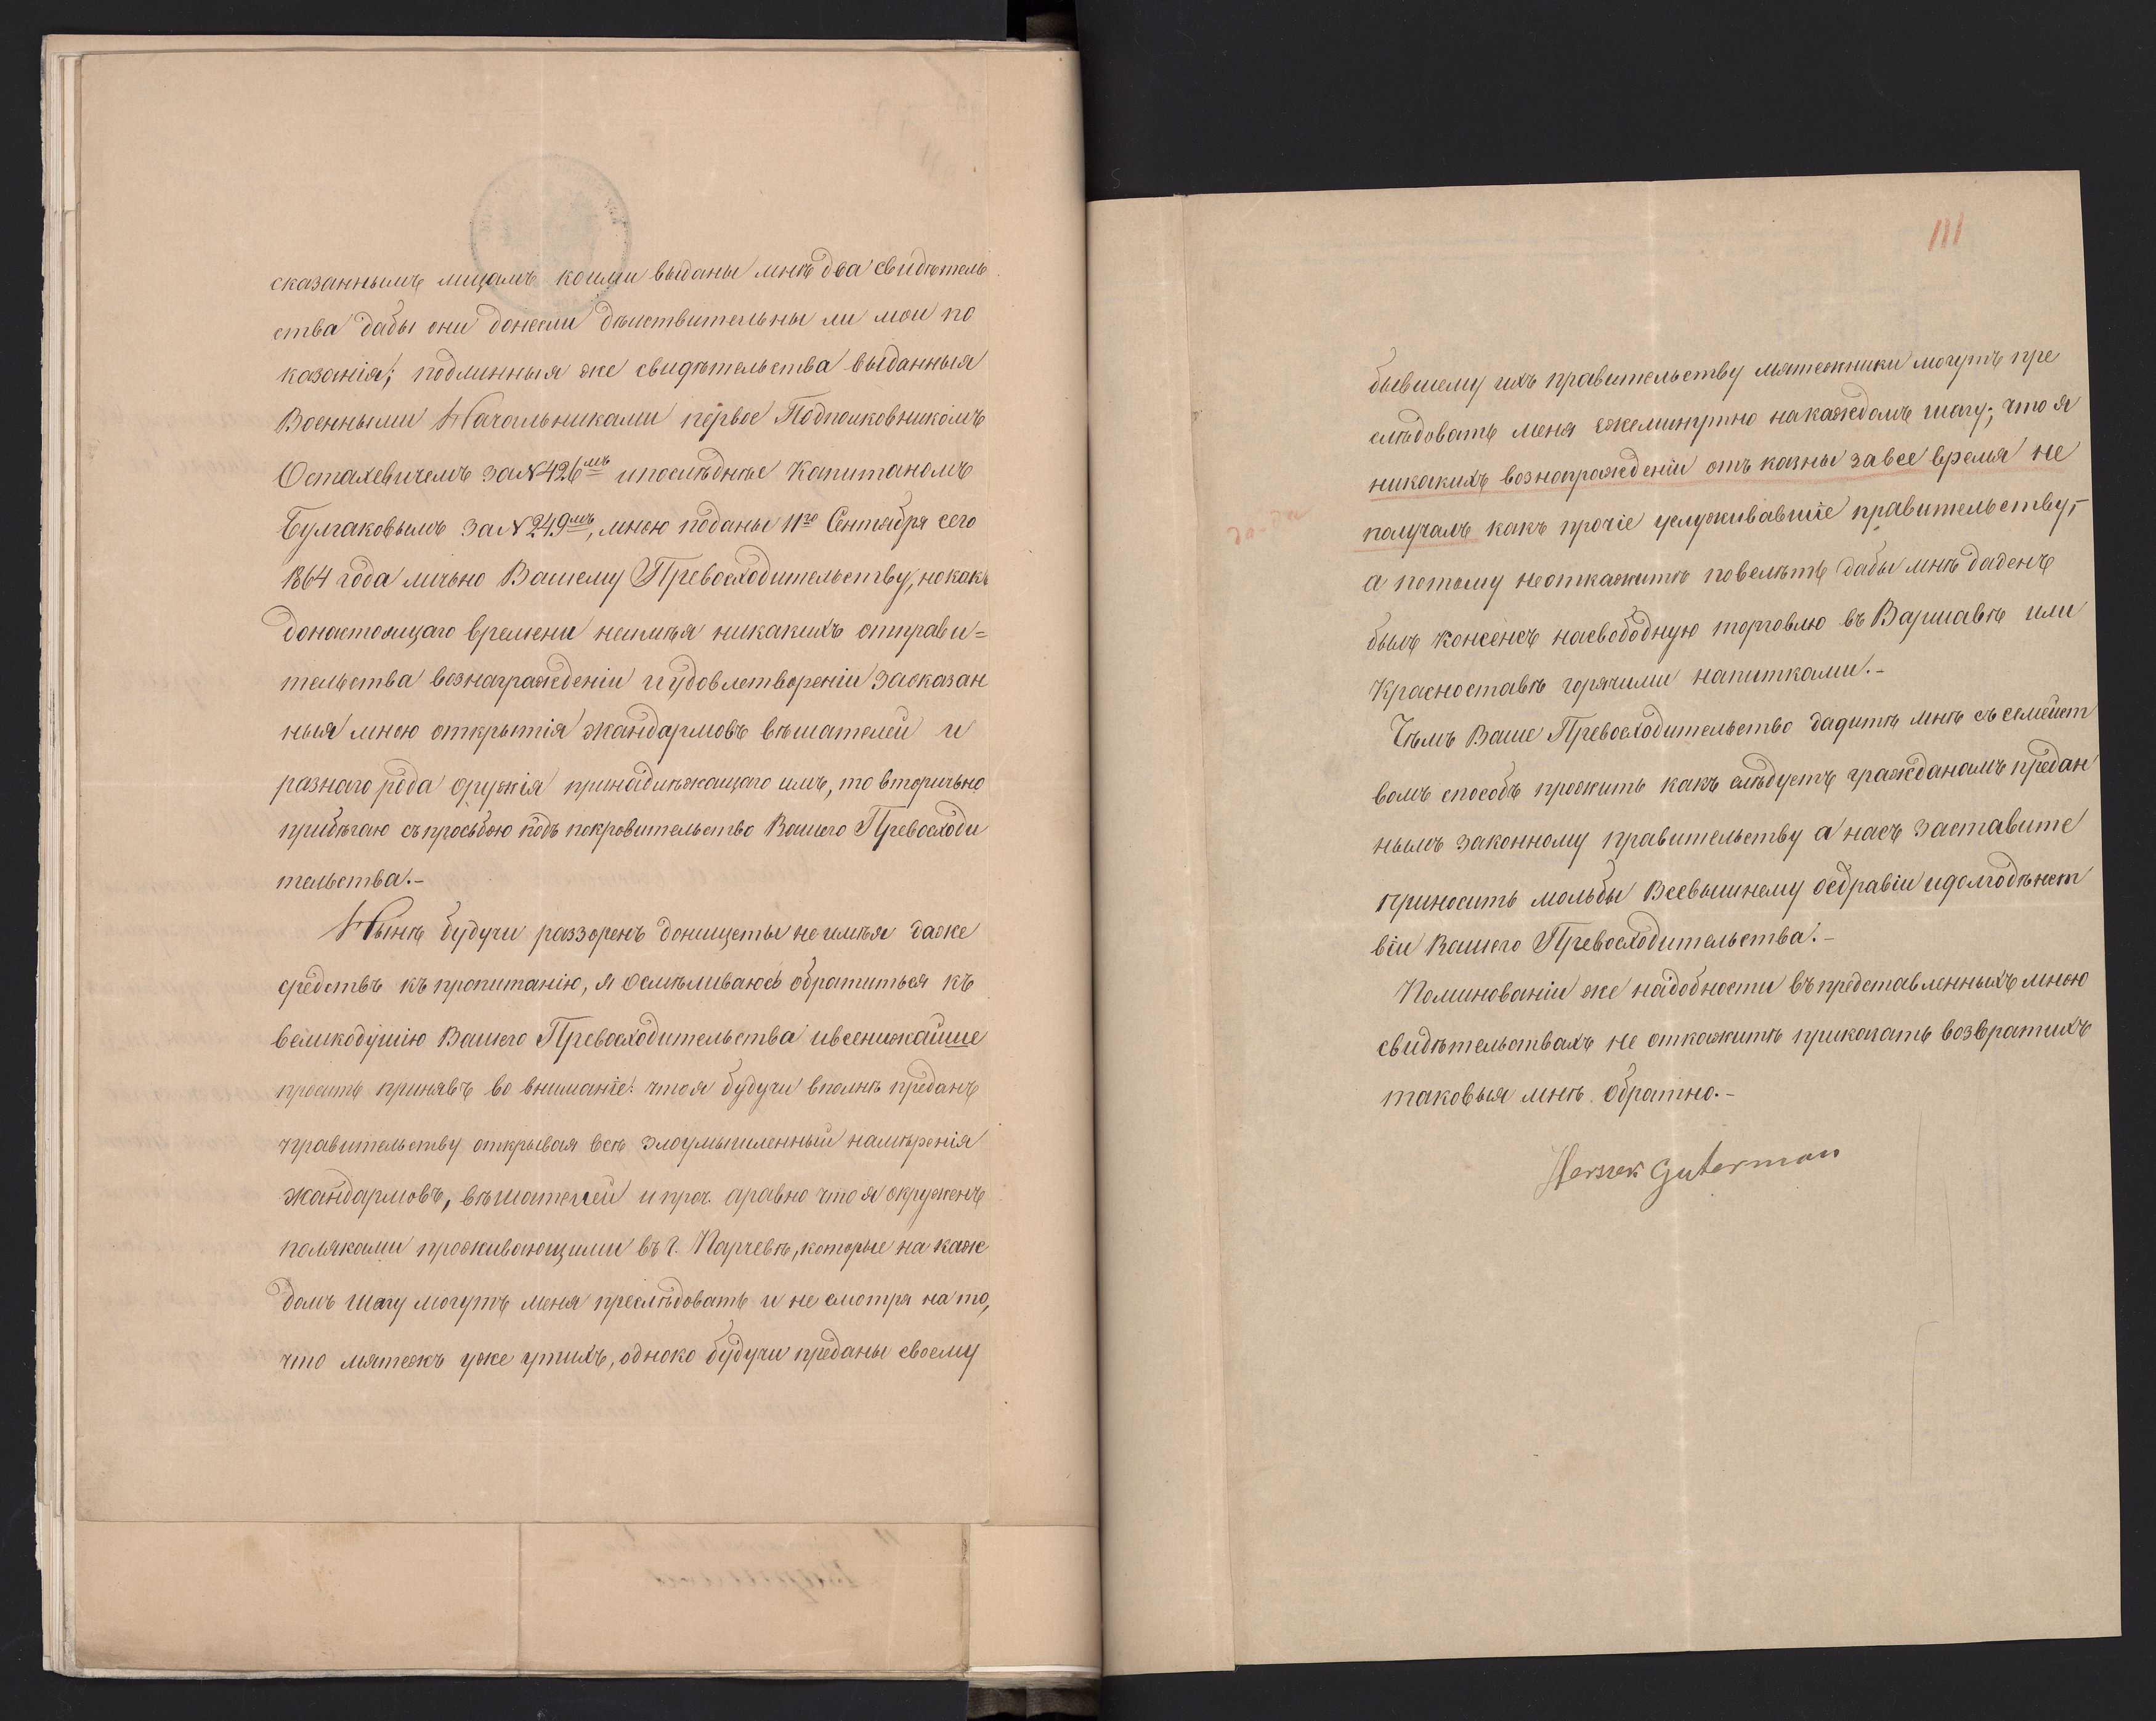 сказаннымъ лицамъ коими выданы мнѣ два свидѣтель
ства дабы они донесли дѣиствительны ли мои по
казанія; подлинныя же свидѣтельства выданныя
Военными Начальниками первое Подполковникомъ
Остахевичемъ за N 426мъ ипослѣднѣе Капитаномъ
Булгаковымъ за N 249мъ, мною поданы 11го Сентября сего
1864 года личьно Вашему Превосходительству, нокакъ
донастоящаго времени неимѣя никакихъ отправи=
тельства вознагражденіи иудовлетвореніи Засказан
ныя мною открытія жандармовъ вѣшателей и
разнаго рода оружія принадлѣжащаго имъ, то вторичьно
прибѣгаю съпросьбою подъ покровительство Вашего Превосходи
тельства.-
Нынѣ будучи раззоренъ донищеты не имѣя даже
средствъ къ пропитанію, я осмѣливаюсь обратиться къ
великодушію Вашего Превосходительства ивсенижайше
просить принявъ во вниманіе: что я будучи вполнѣ преданъ
правительству открывая всѣ злоумышленный намѣренія
жандармовъ, вѣшателей и проч. аравно что я окруженъ
поляками проживающими въ г. Парчевѣ, которые на каж
домъ шагу могутъ меня преслѣдовать и не смотря на то,
что мятежъ уже утихъ, однако будучи преданы своему
111
бывшему ихъ правительству мятежники могутъ пре
слѣдовать меня ежеминутно накаждомъ шагу; что я
никакихъ вознагражденіи отъ казны завсе время не
получалъ какъ прочіе услуживавшіе правительству,-
а потому неоткажитѣ повелѣть дабы мнѣ даденъ
былъ консенсъ насвободную торговлю въ Варшавѣ или
Красноставѣ горячими напитками.-
Чѣмъ Ваше Превосходительство дадитѣ мнѣ съ семейст
вомъ способъ прожить какъ слѣдуетъ гражданамъ предан
нымъ законному правительству а насъ заставите
приносить мольбы Всевышнему оздравіи идолгодѣнст
віи Вашего Превосходительства.-
Поминованіи же надобности въ представленныхъ мною
свидѣтельствахъ не откажитѣ приказать возвратихъ
таковыя мнѣ обратно.-
Herszek Guterman